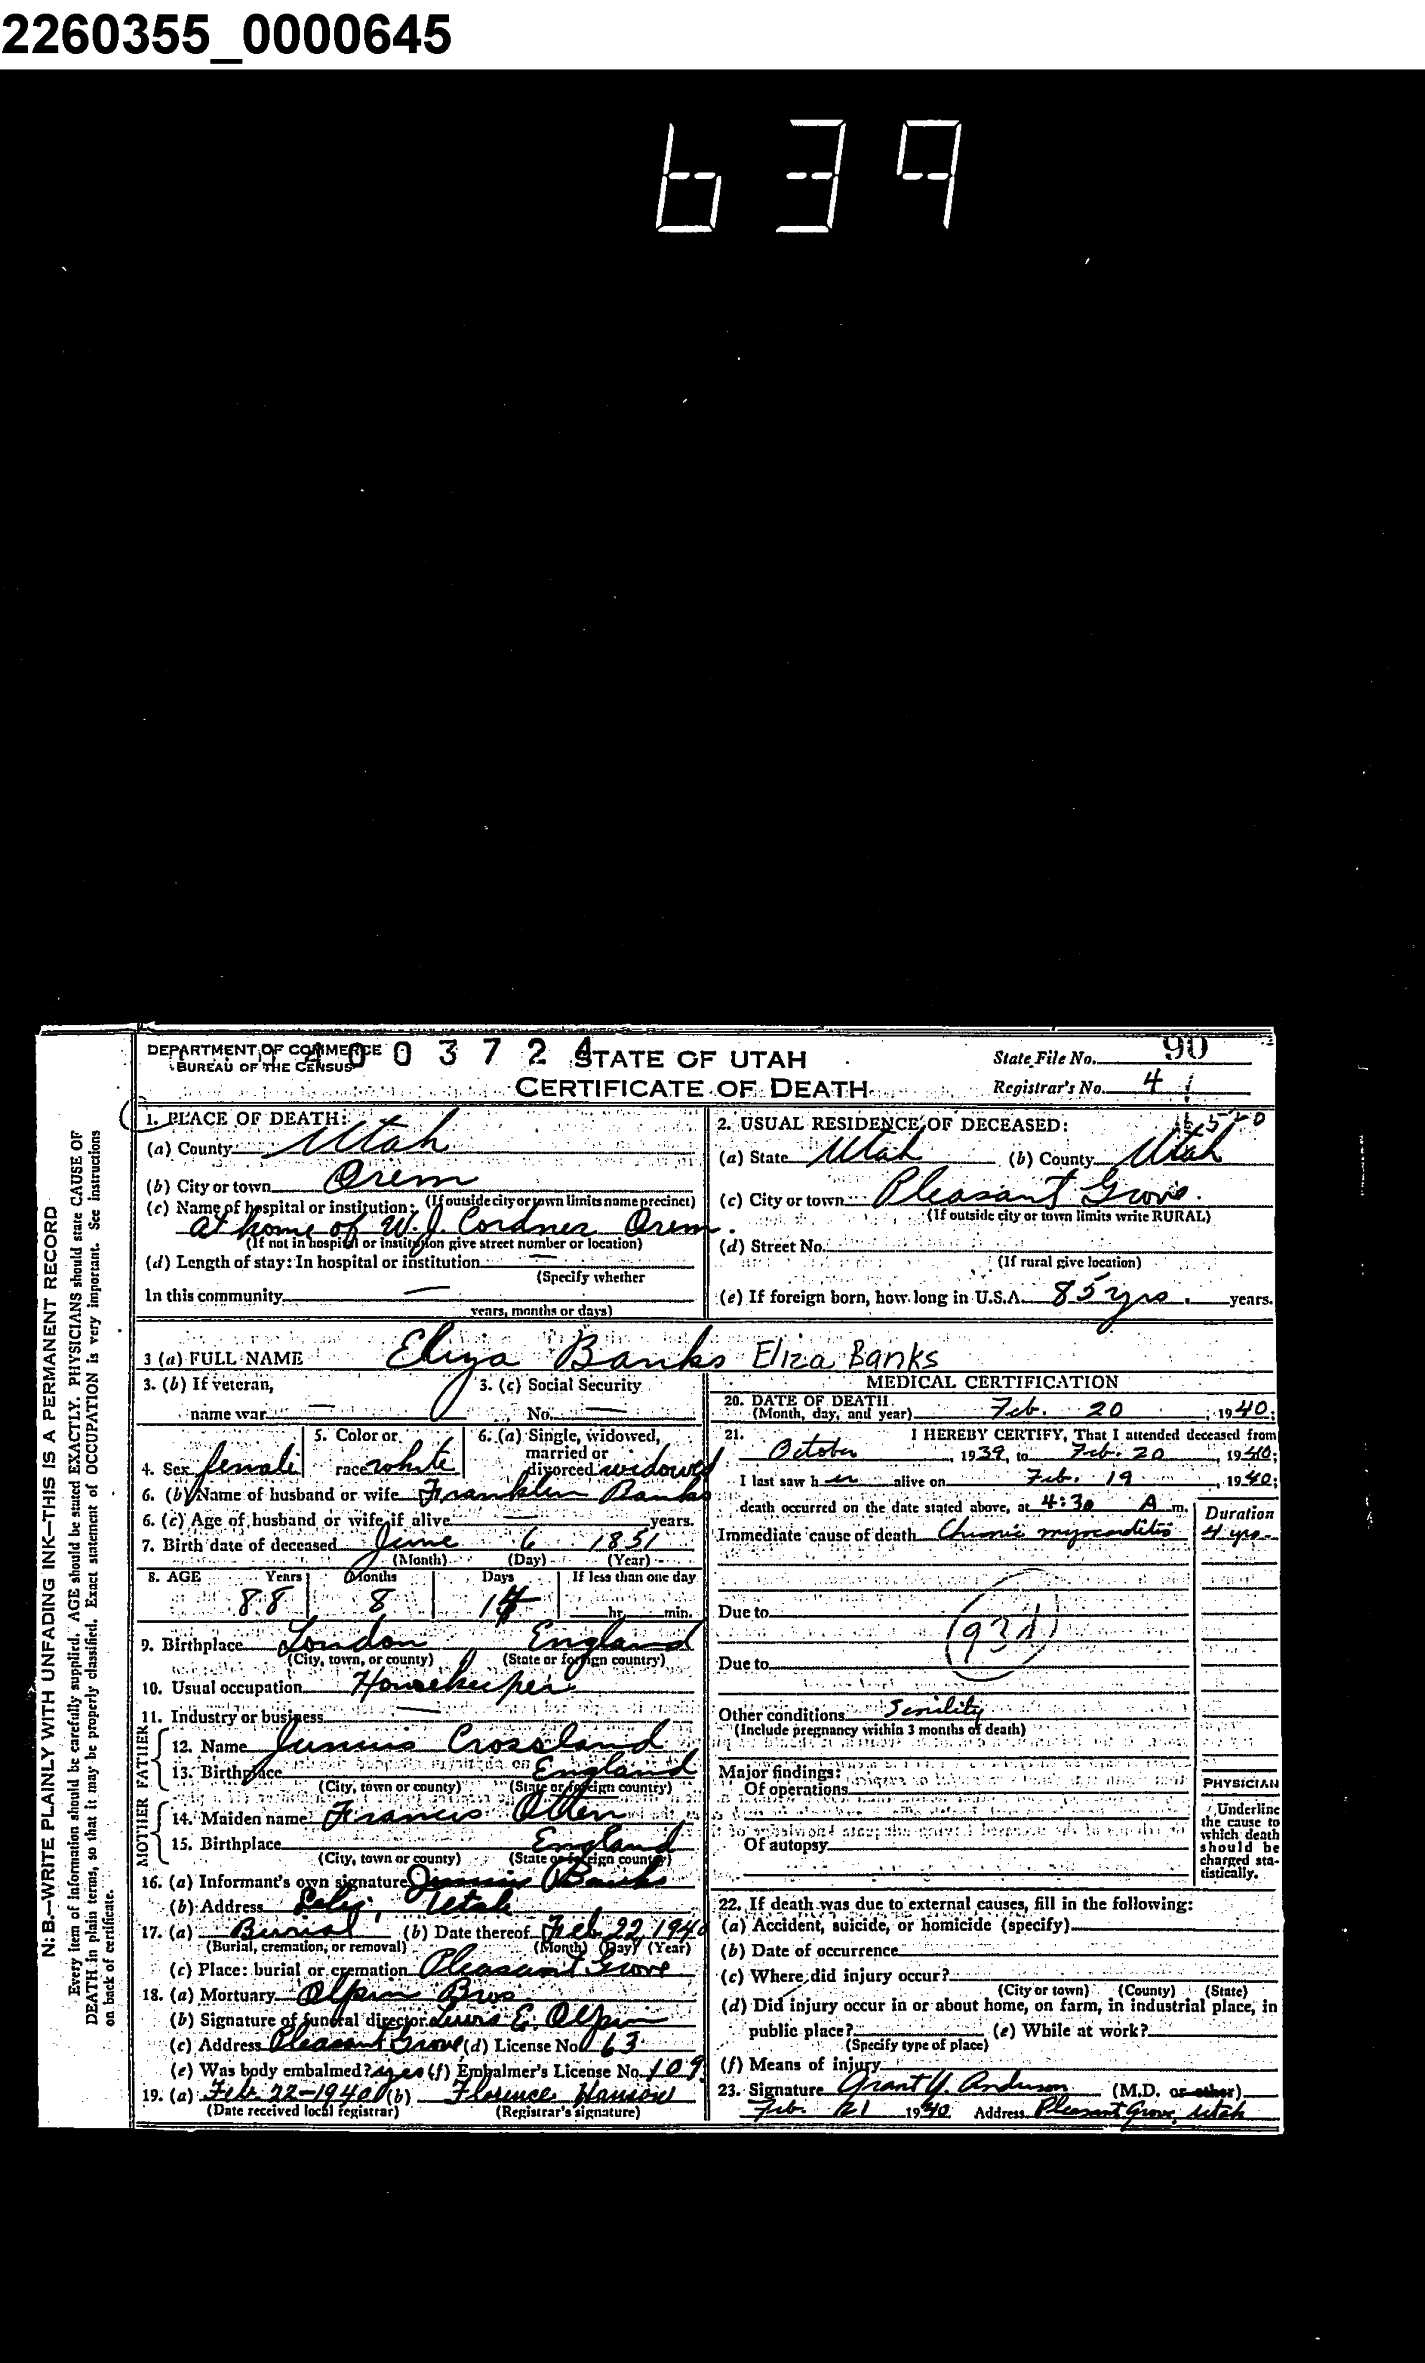 2260355_0000645
639
DEPARTMENT OF COMMERCE
BUREAU OF THE CENSUS
4003724
STATE OF UTAH
CERTIFICATE OF DEATH
State File No. 90
Registrar's No. 4
1. PLACE OF DEATH:
(a) County Utah
(b) City or town Orem
(If outside city or town limits name precinct)
(c) Name of hospital or institution:
at home of W. J. Cordner Orem.
(If not in hospital or institution give street number or location)
(d) Length of stay: In hospital or institution —
(Specify whether
In this community —
years, months or days)
2. USUAL RESIDENCE OF DECEASED:
(a) State Utah (b) County Utah
(c) City or town Pleasant Grove.
(If outside city or town limits write RURAL)
(d) Street No.
(If rural give location)
(e) If foreign born, how long in U.S.A. 85 yrs. years.
3 (a) FULL NAME Eliza Banks Eliza Banks
3. (b) If veteran,
name war —
3. (c) Social Security
No. —
4. Sex female
5. Color or
race white
6. (a) Single, widowed,
married or
divorced widowed
6. (b) Name of husband or wife Franklin Banks
6. (c) Age of husband or wife if alive — years.
7. Birth date of deceased June 6 1851
(Month) (Day) (Year)
8. AGE Years Months Days If less than one day
88 8 14 hr. min.
9. Birthplace London England
(City, town, or county) (State or foreign country)
10. Usual occupation Housekeeper
11. Industry or business —
FATHER
12. Name Junius Crossland
13. Birthplace England
(City, town or county) (State or foreign country)
MOTHER
14. Maiden name Francis Otten
15. Birthplace England
(City, town or county) (State or foreign country)
16. (a) Informant's own signature Junius Banks
(b) Address Lehi, Utah
17. (a) Burial (b) Date thereof Feb 22, 1940
(Burial, cremation, or removal) (Month) (Day) (Year)
(c) Place: burial or cremation Pleasant Grove
18. (a) Mortuary Olpin Bros
(b) Signature of funeral director Lewis E. Olpin
(c) Address Pleasant Grove (d) License No. 63
(e) Was body embalmed? yes (f) Embalmer's License No. 109
19. (a) Feb. 22-1940 (b) Florence Hanson
(Date received local registrar) (Registrar's signature)
MEDICAL CERTIFICATION
20. DATE OF DEATH
(Month, day, and year) Feb. 20, 1940;
21. I HEREBY CERTIFY, That I attended deceased from
October, 1939, to Feb. 20, 1940;
I last saw h er alive on Feb. 19, 1940;
death occurred on the date stated above, at 4:30 A m.
Duration
Immediate cause of death Chronic myocarditis 4 yrs-
Due to
Due to
Other conditions Senility
(Include pregnancy within 3 months of death)
Major findings:
Of operations
Of autopsy
PHYSICIAN
Underline
the cause to
which death
should be
charged sta-
tistically.
22. If death was due to external causes, fill in the following:
(a) Accident, suicide, or homicide (specify)
(b) Date of occurrence
(c) Where did injury occur?
(City or town) (County) (State)
(d) Did injury occur in or about home, on farm, in industrial place, in
public place? (e) While at work?
(Specify type of place)
(f) Means of injury
23. Signature Grant Y. Anderson (M.D. or other)
Feb. 21 1940 Address Pleasant Grove, Utah
N. B.—WRITE PLAINLY WITH UNFADING INK—THIS IS A PERMANENT RECORD
Every item of information should be carefully supplied. AGE should be stated EXACTLY. PHYSICIANS should state CAUSE OF
DEATH in plain terms, so that it may be properly classified. Exact statement of OCCUPATION is very important. See instructions
on back of certificate.